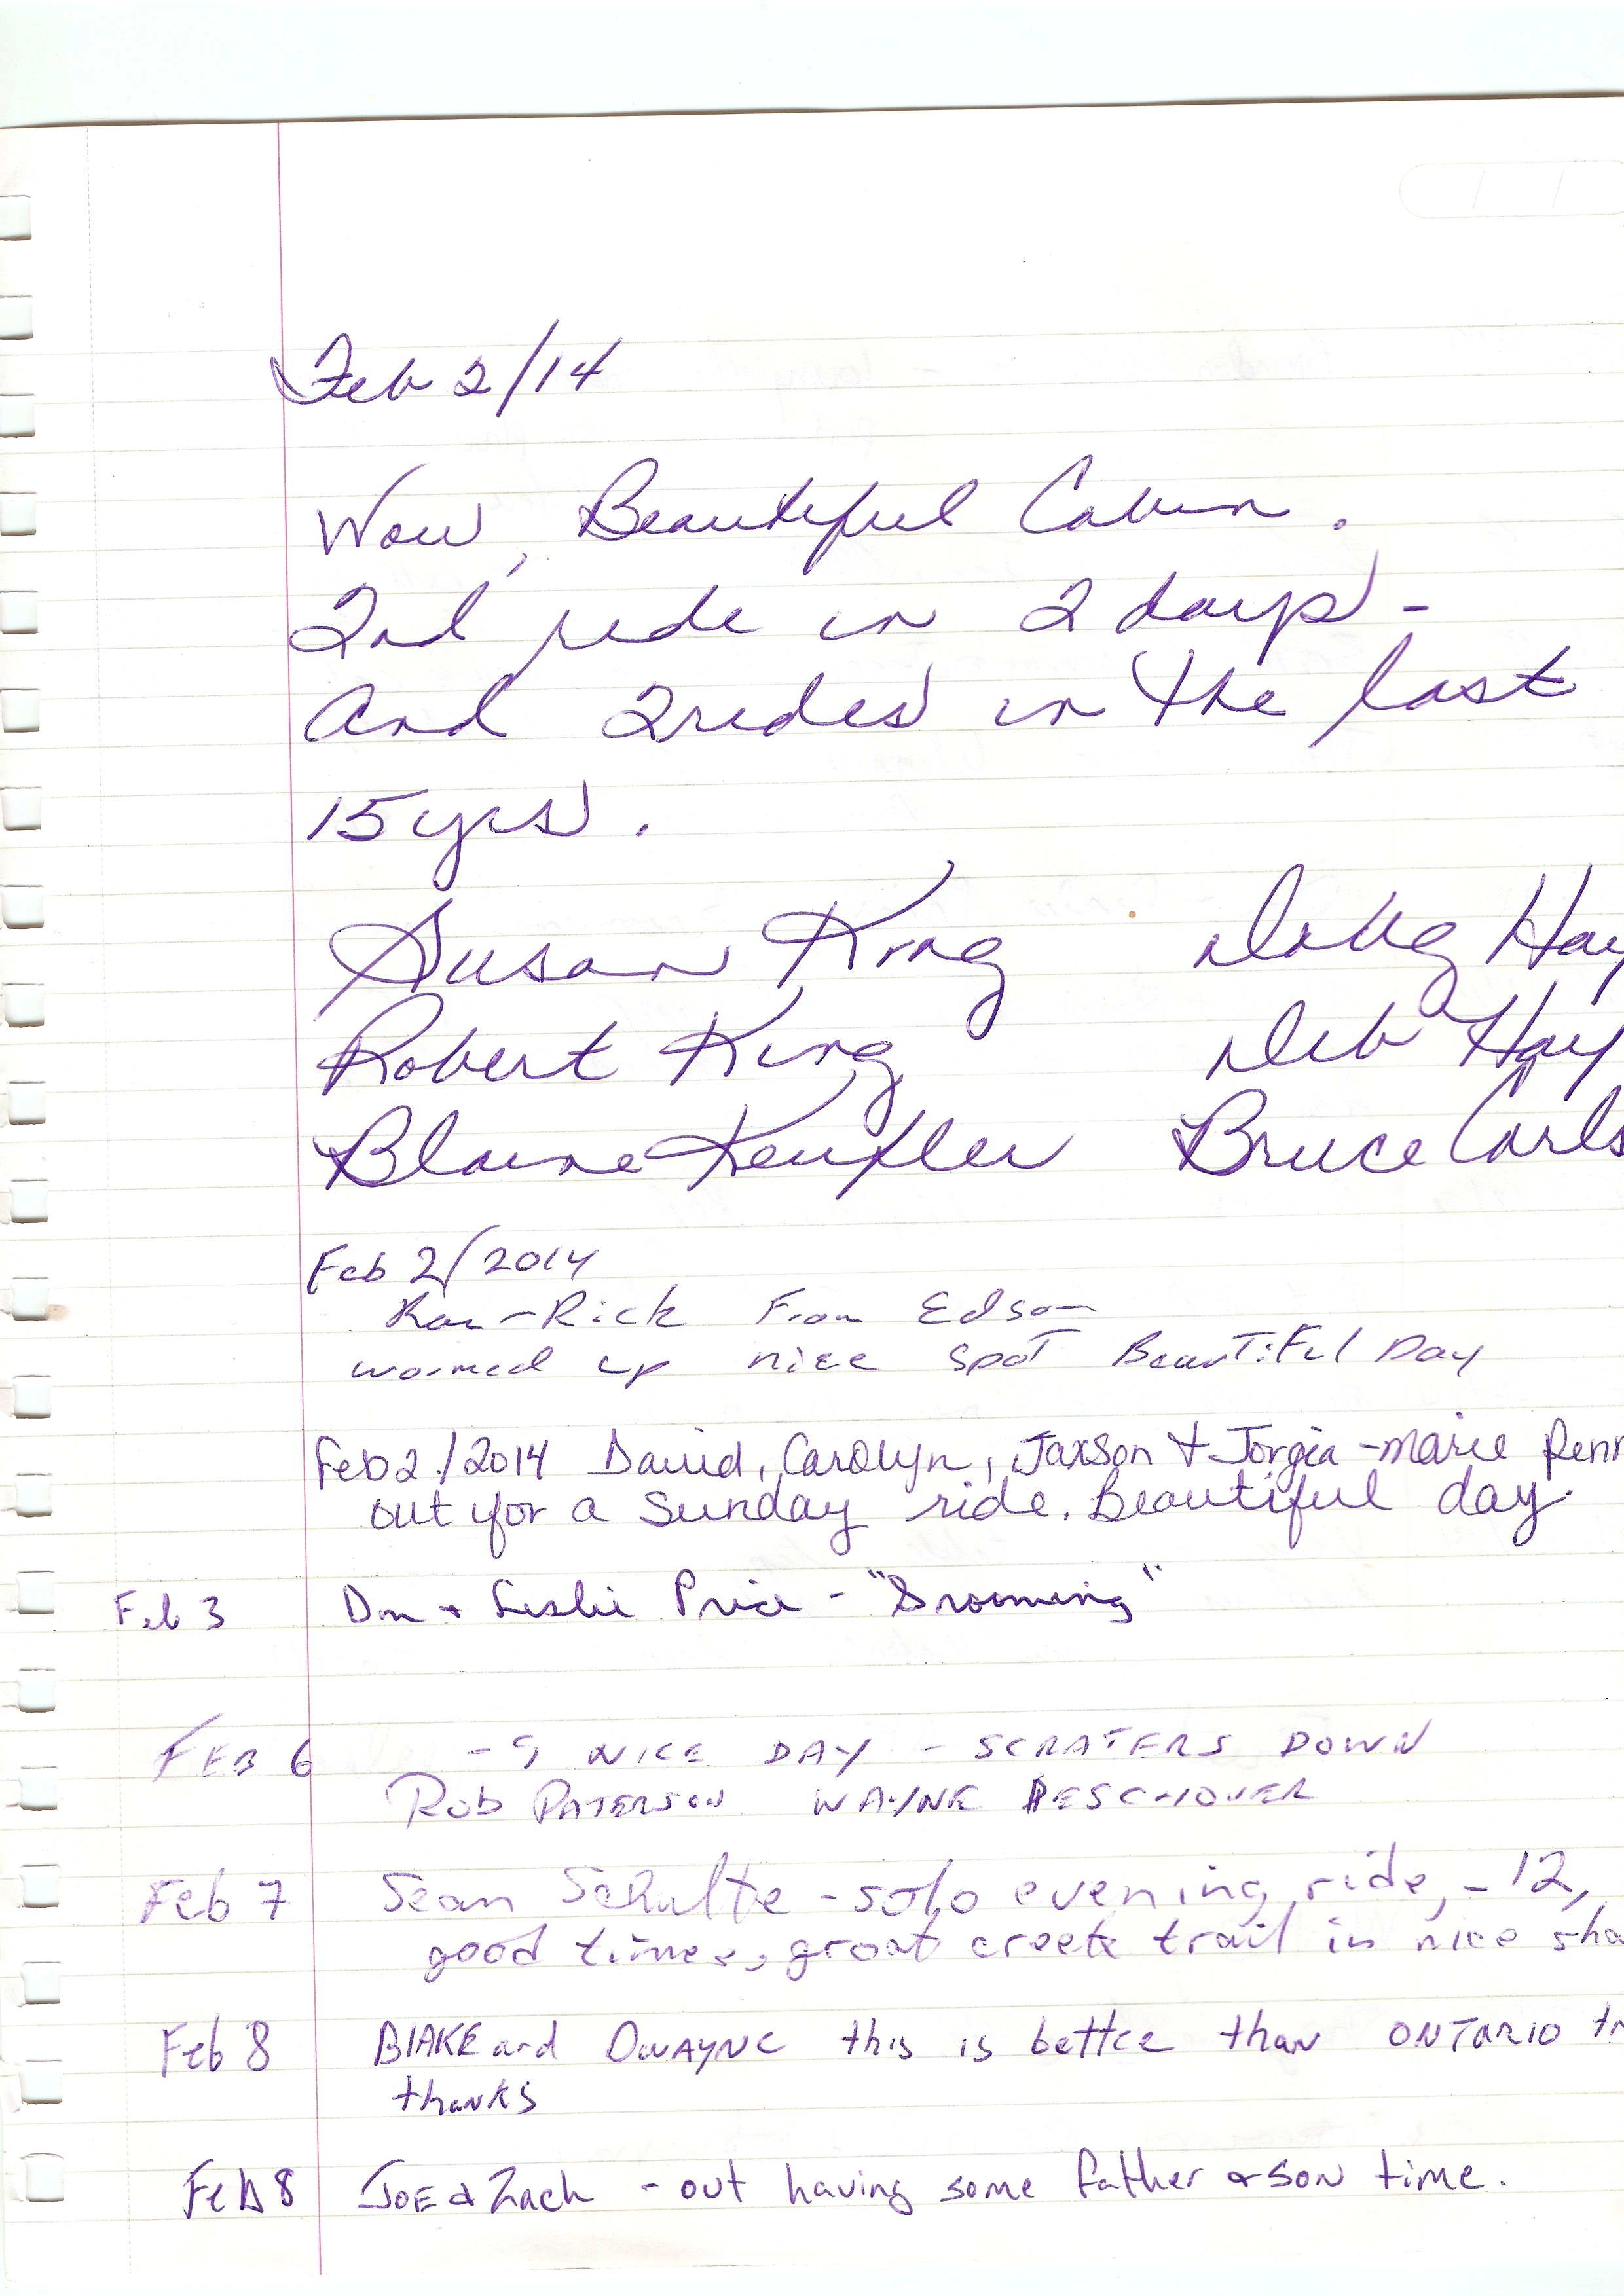 Feb 2/14
Wow, Beautiful Cabin.
2nd ride in 2 days -
and 2 rides in the last
15 yrs.
Susan King Doug Hay
Robert King Deb Hay
Blaine Bruce Carls
Feb 2/2014
Ron-Rick From Edson
warmed up nice spot Beautiful Day
Feb 2/2014 David, Carolyn, Jaxson & Jorgia-marie Penn
out for a Sunday ride. Beautiful day.
Feb 3 Don + Leslie Price - "Grooming"
FEB 6 -9 NICE DAY - SCRATERS DOWN
ROB PATERSON WAYNE
Feb 7 Sean Schulte - solo evening ride, -12,
good times, groat creek trail in nice sha
Feb 8 BlAKE and DWAYNE this is better than ONTARIO tr
thanks
Feb 8 JOE & Zach - out having some father & son time.